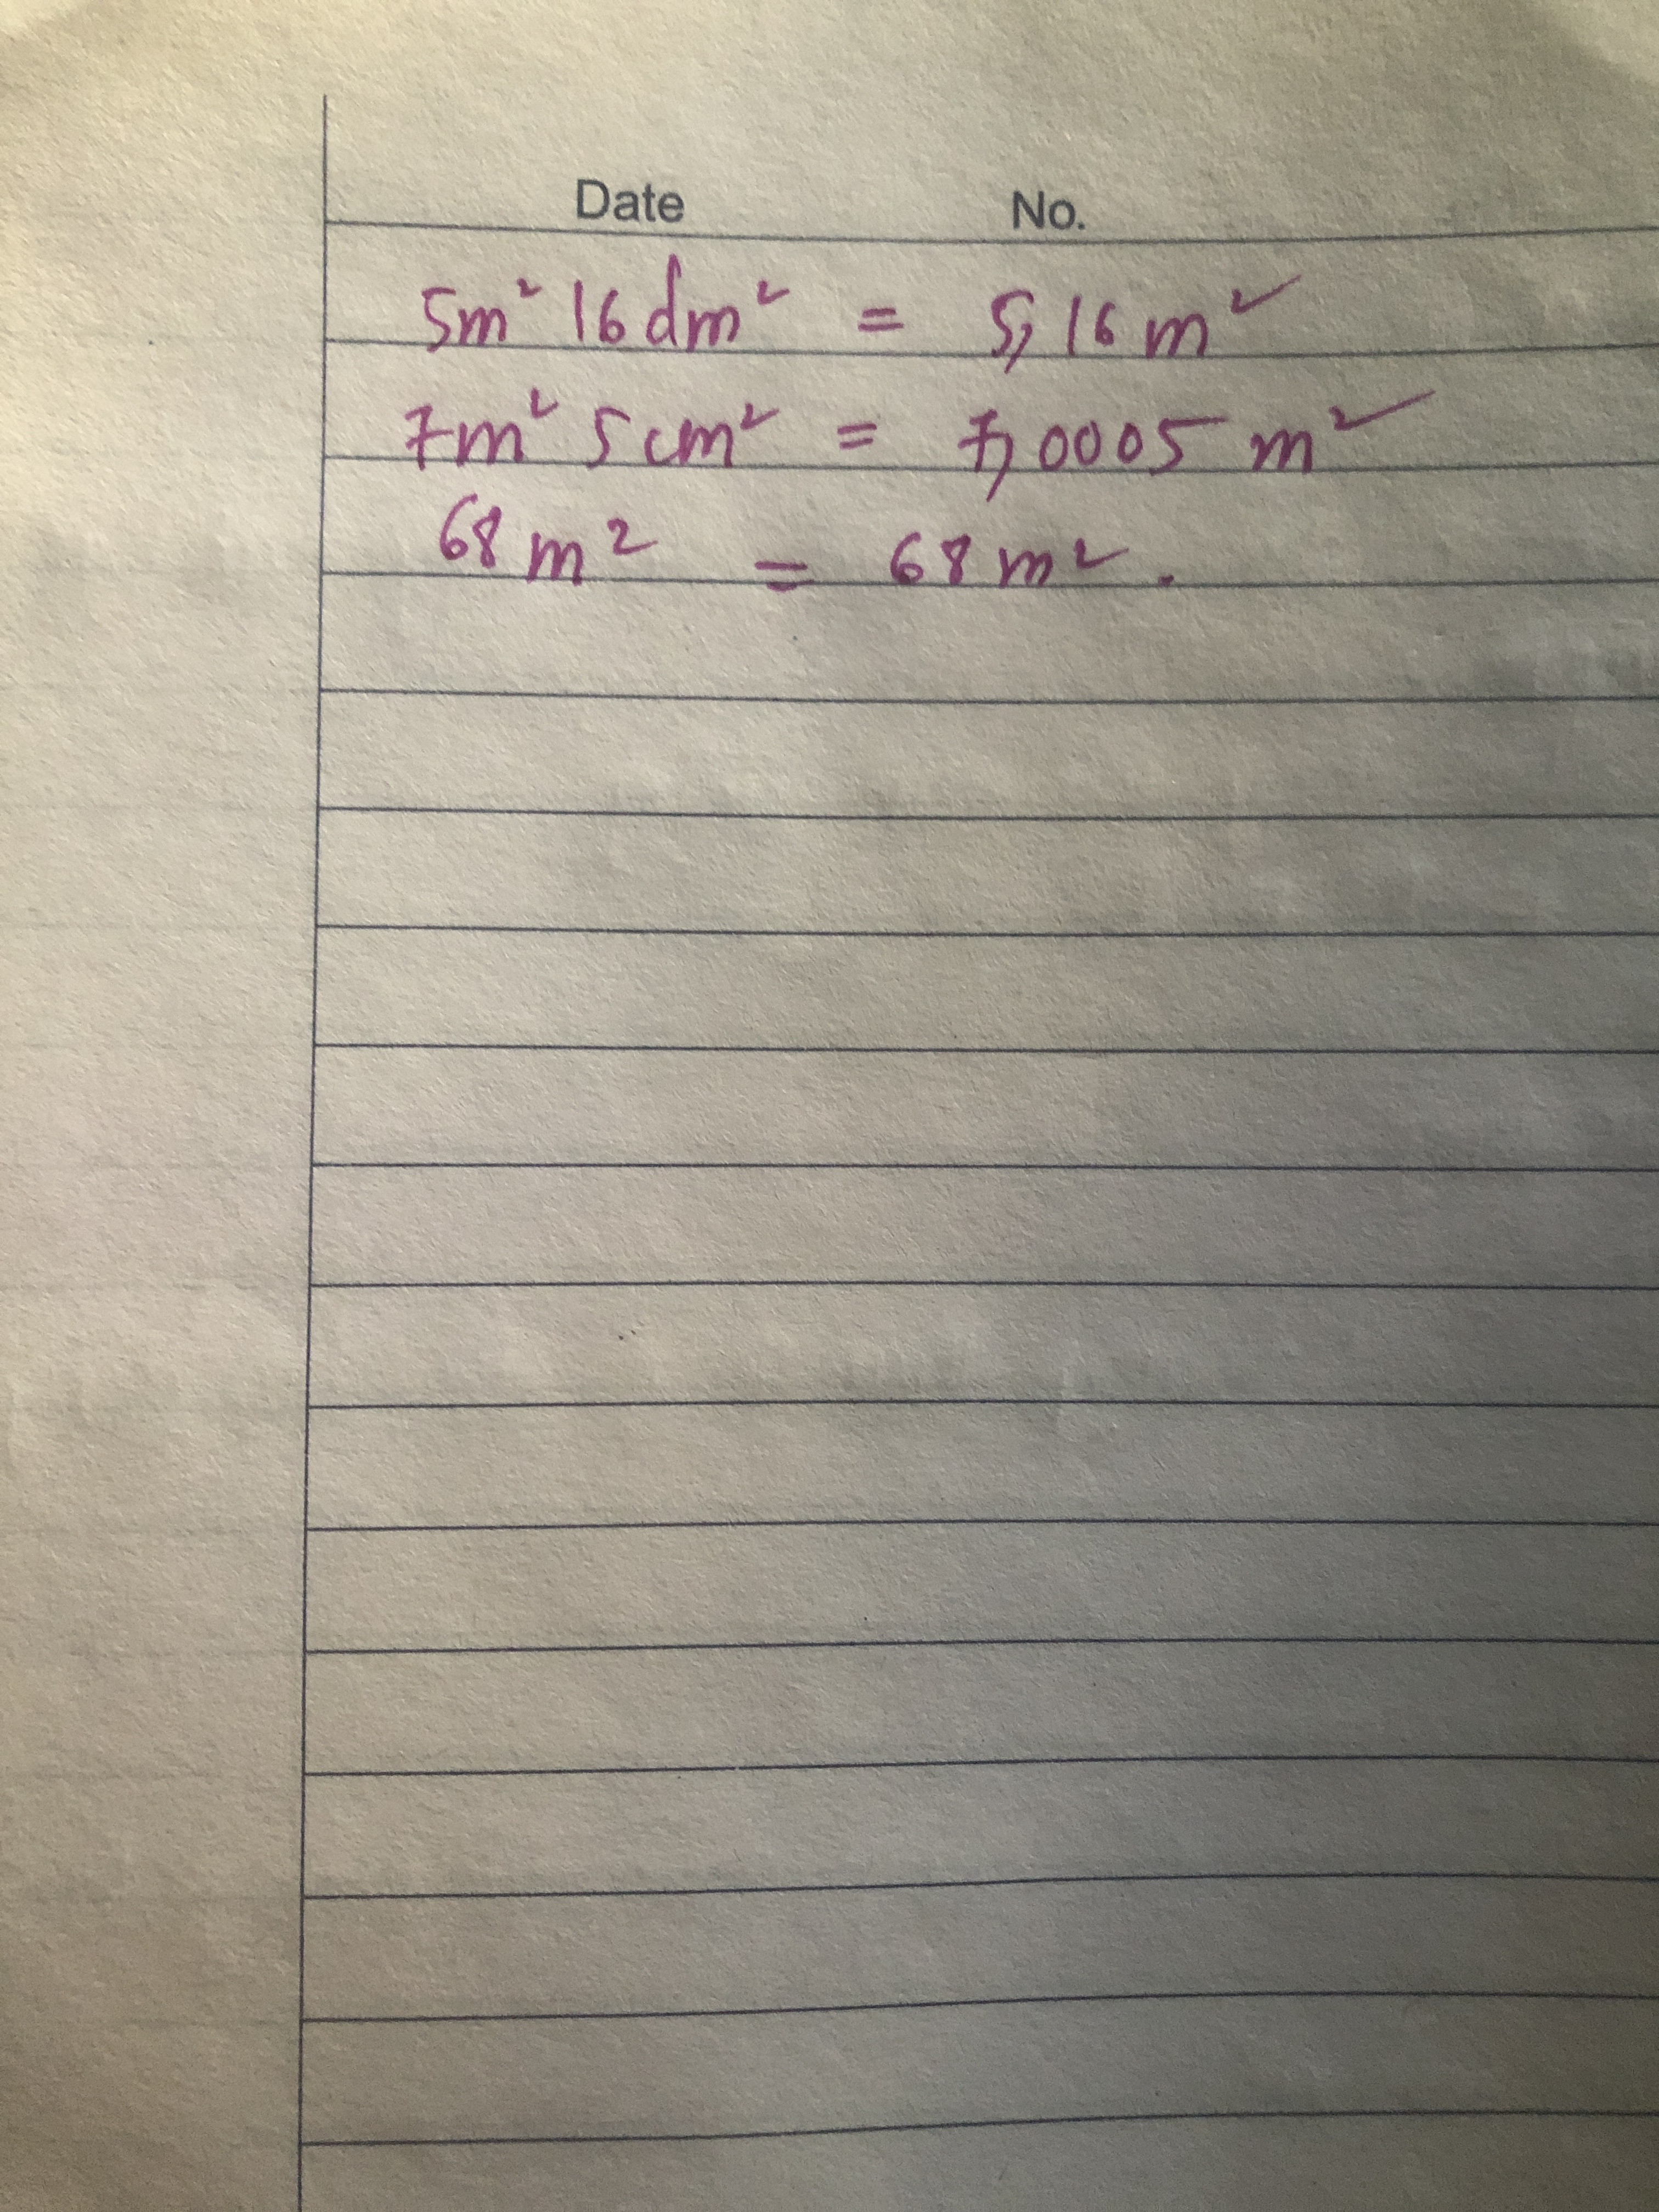 Date No.
5m² 16dm² = 5,16m²
7m² 5cm² = 7,0005m²
68m² = 68m².